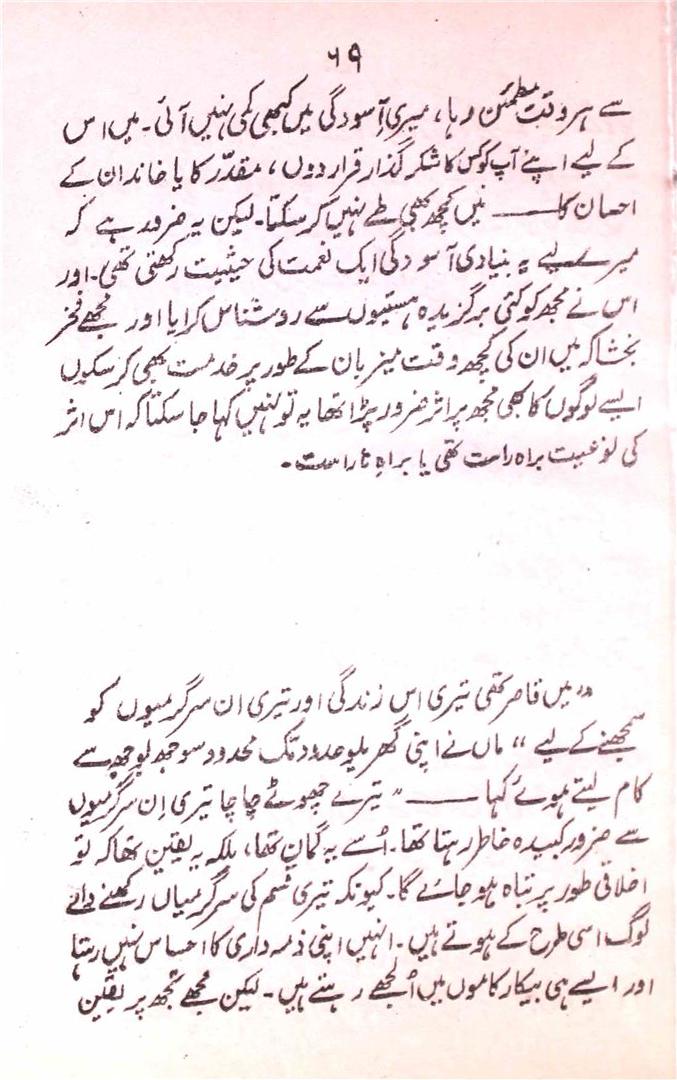 ۶۹
سے ہر وقت مطمئن رہا، میری آسودگی میں کبھی کمی نہیں آئی۔ میں اس
کے لیے اپنے آپ کو کس کا شکر گذار قرار دوں، مقدّر کا یا خاندان کے
احسان کا —— میں کچھ بھی طے نہیں کر سکتا۔ لیکن یہ ضرور ہے کہ
میرے لیے یہ بنیادی آسودگی ایک نعمت کی حیثیت رکھتی تھی۔ اور
اس نے مجھ کو کتنی برگزیدہ ہستیوں سے روشناس کرایا اور مجھے فخر
بخشا کہ میں ان کی کچھ وقت میزبان کے طور پر خدمت بھی کر سکوں
ایسے لوگوں کا بھی مجھ پر اثر ضرور پڑا تھا یہ تو نہیں کہا جا سکتا کہ اس اثر
کی نوعیت براہ راست تھی یا براہِ ناراست۔
"میں قاصر تھی تیری اس زندگی اور تیری ان سرگرمیوں کو
سمجھنے کے لیے" ماں نے اپنی گھریلو حدود تک محدود سوجھ بوجھ سے
کام لیتے ہوئے کہا —— "تیرے چھوٹے چاچا تیری اِن سرگرمیوں
سے ضرور کبیدہ خاطر رہتا تھا۔ اُسے یہ گمان تھا، بلکہ یہ یقین تھا کہ تو
اخلاقی طور پر تباہ ہو جائے گا۔ کیونکہ تیری قسم کی سرگرمیاں رکھنے والے
لوگ اسی طرح کے ہوتے ہیں۔ انہیں اپنی ذمہ داری کا احساس نہیں رہتا
اور ایسے ہی بیکار کاموں میں اُلجھے رہتے ہیں۔ لیکن مجھے تجھ پر یقین